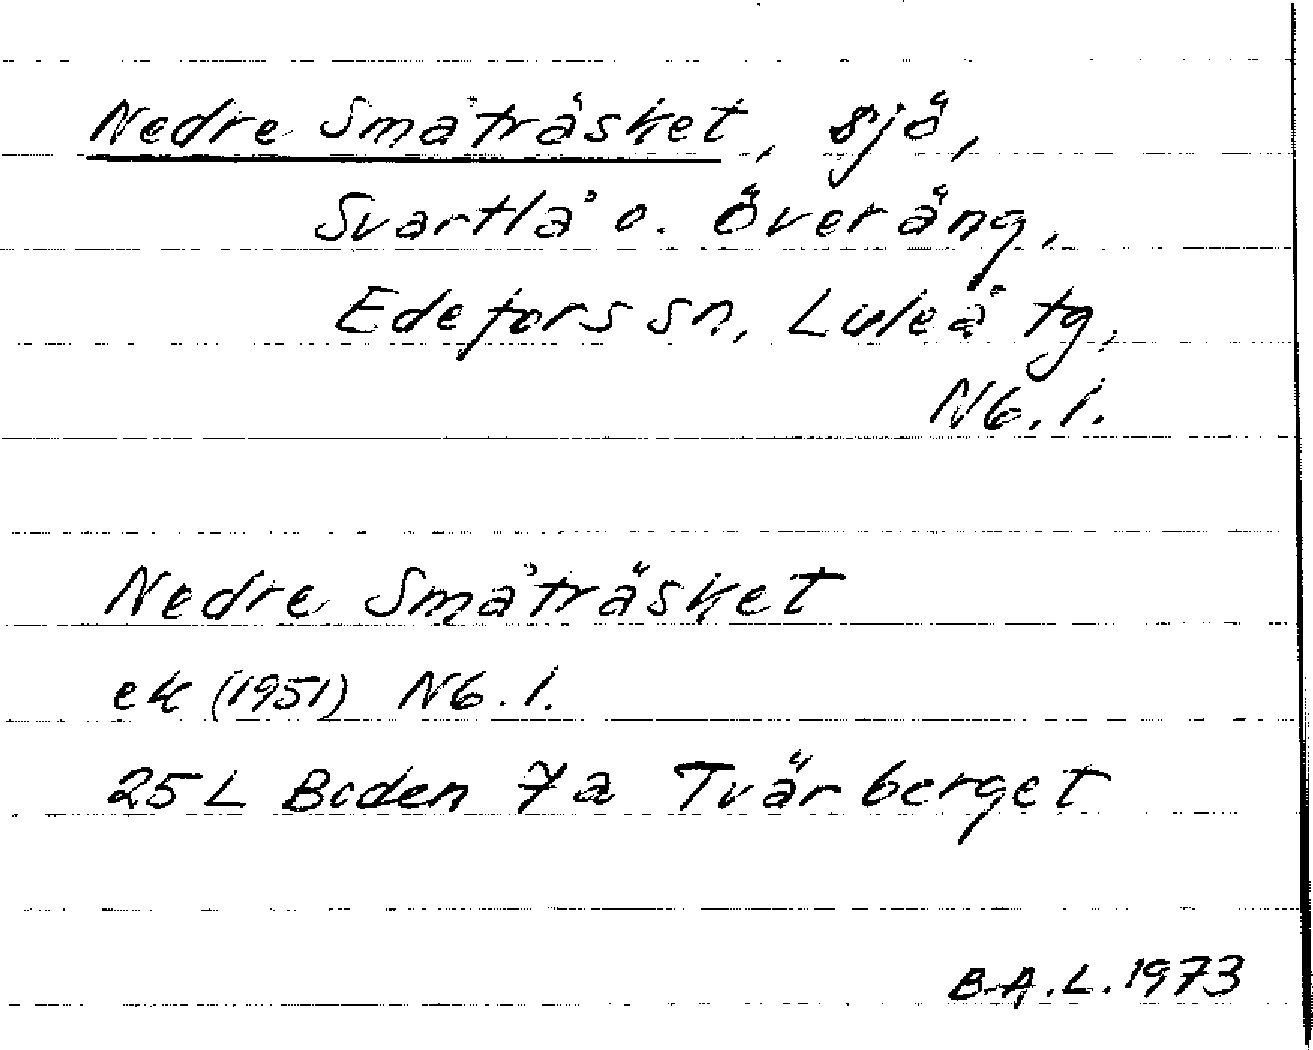 Nedre Småträsket, sjö,
Svartlå o. Överäng,
Edefors sn, Luleå tg,
Nb. l.
Nedre Småträsket
ek (1951) Nb. l.
25 L Boden 7a Tvärberget
B-A.L. 1973